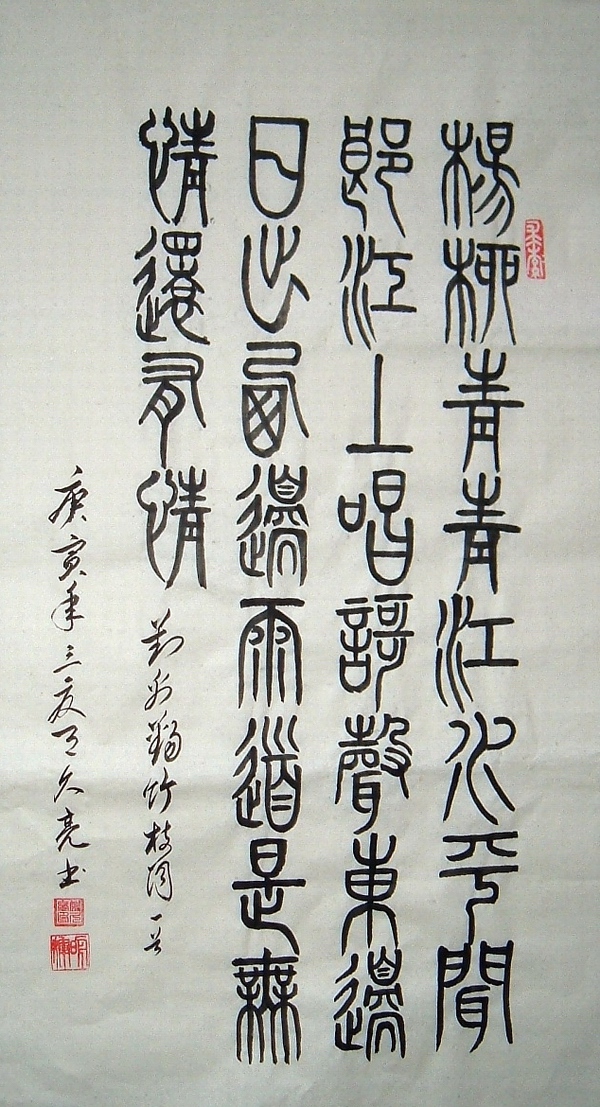 楊柳青青江水平聞
郎江上唱謌聲東邊
日出西邊雨道是無
情還有情
劉禹錫竹枝詞一首
庚寅年三夏
久亮书